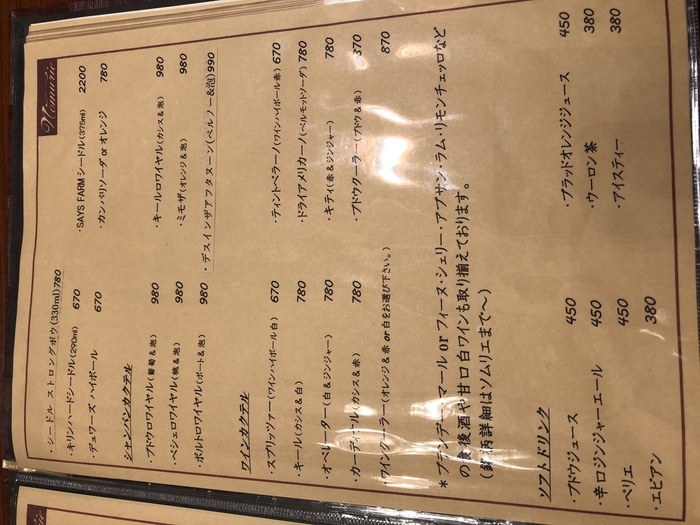 Nomuzic
・シードル ストロングボウ(330ml) 780
・キリンハードシードル(290ml) 670
・SAYS FARM シードル(375ml) 2200
・デュワーズ ハイボール 670
・カンパリソーダ or オレンジ 780
シャンパンカクテル
・ブドウロワイヤル(葡萄＆泡) 980
・キールロワイヤル(カシス＆泡) 980
・ペシェロワイヤル(桃＆泡) 980
・ミモザ(オレンジ＆泡) 980
・ポルトロワイヤル(ポート＆泡) 980
・デスインザアフタヌーン(ペルノー＆泡) 990
ワインカクテル
・スプリッツァー(ワインハイボール白) 670
・ティントベラーノ(ワインハイボール赤) 670
・キール(カシス＆白) 780
・ドライアメリカーノ(ベルモットソーダ) 780
・オペレーター(白＆ジンジャー) 780
・キティ(赤＆ジンジャー) 780
・カーディナル(カシス＆赤) 780
・ブドウクーラー(ブドウ＆赤) 870
・ワインクーラー(オレンジ＆赤 or 白をお選び下さい。) 870
＊ブランデー・マール or フィーヌ・シェリー・アブサン・ラム・リモンチェッロなど
の食後酒や甘口白ワインも取り揃えております。
(銘柄詳細はソムリエまで〜)
ソフトドリンク
・ブドウジュース 450
・ブラッドオレンジジュース 450
・辛口ジンジャーエール 450
・ウーロン茶 380
・ペリエ 450
・アイスティー 380
・エビアン 380